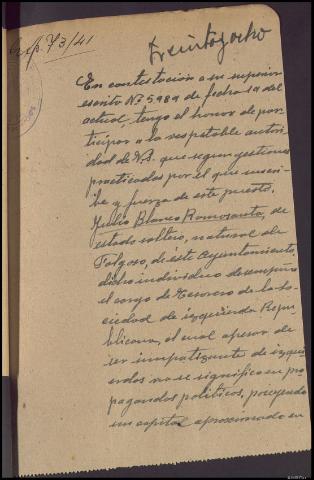 Exp. 73/41
Treintayocho
En contestación a su superior
escrito Nº 5989 de fecha 19 del
actual, tengo el honor de par-
ticipar a la respetable autori-
dad de V.S. que segun gestiones
practicadas por el que suscri-
be y fuerza de este puesto,
Julio Blanco Romasanta, de
estado soltero, natural de
Folgoso, de este Ayuntamiento,
dicho individuo desempeñó
el cargo de Tesorero de la So-
ciedad de izquierda Repu-
blicana, el cual apesar de
ser simpatizante de izqui
erdas no se significó en pro
pagandas politicas, poseyendo
un capital aproximado en